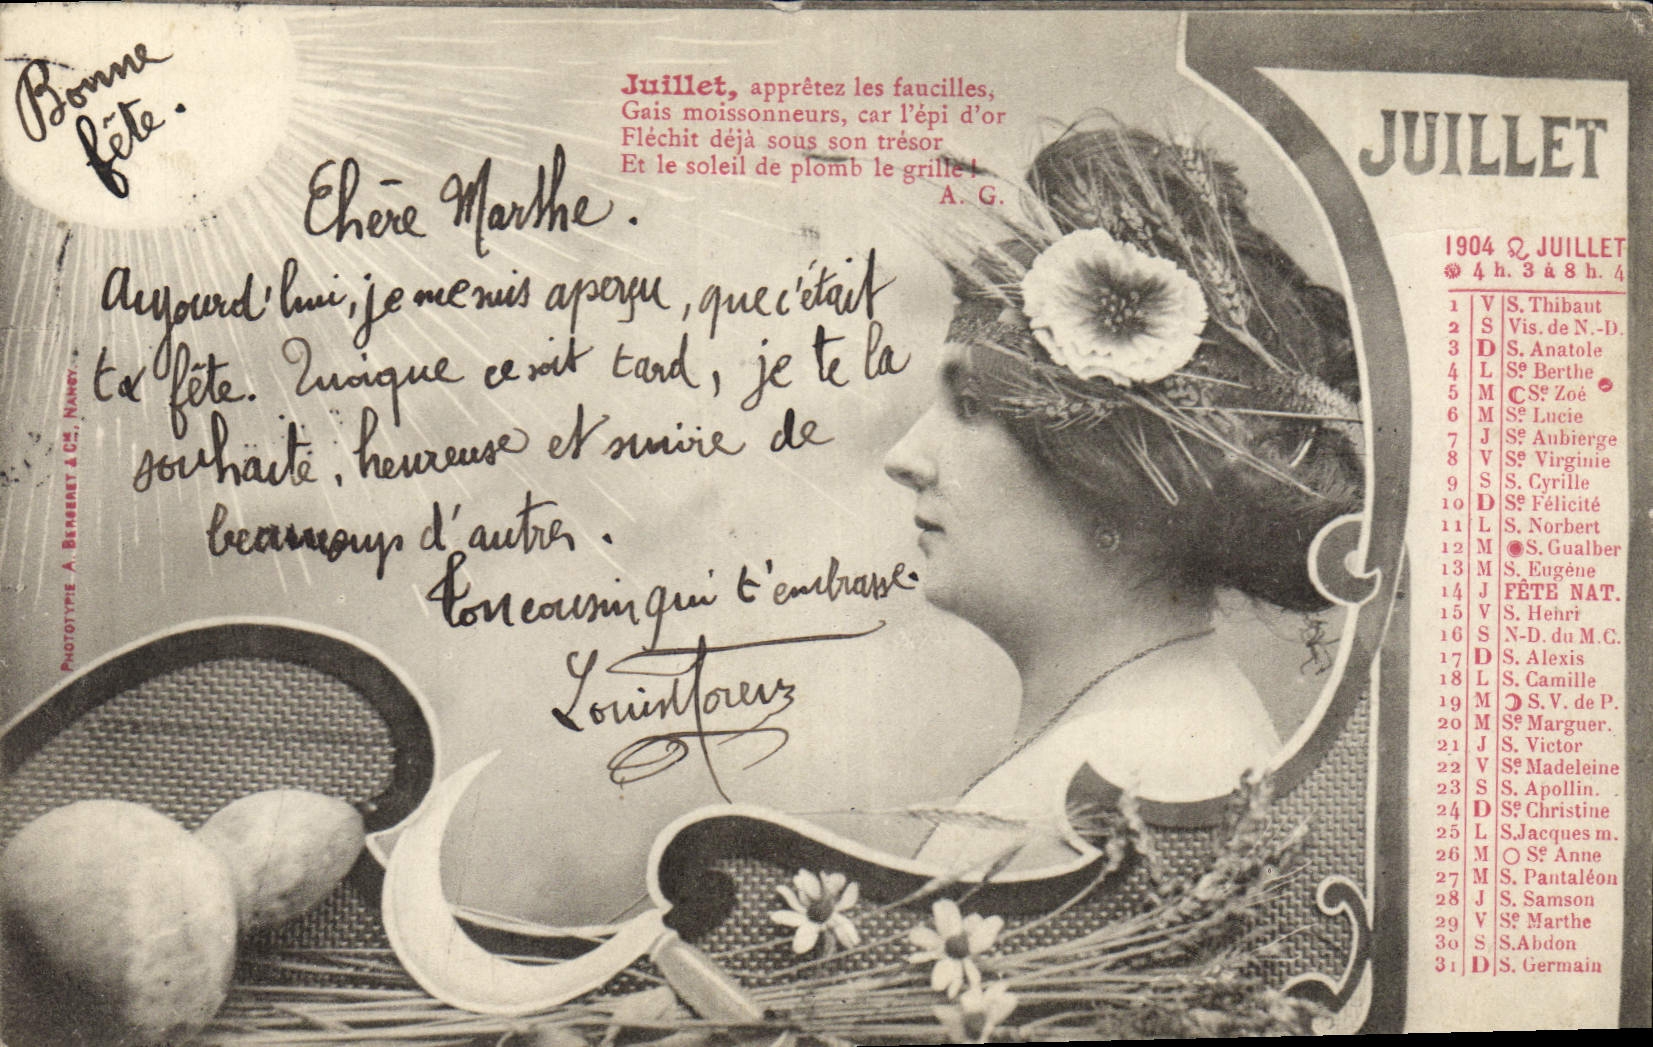 Bonne
fête.
Juillet, apprêtez les faucilles,
Gais moissonneurs, car l'épi d'or
Fléchit déjà sous son trésor
Et le soleil de plomb le grille!
A. G.
Chère Marthe.
Aujourd'hui, je me suis aperçu, que c'était
ta fête. Quoique ce soit tard, je te la
souhaite, heureuse et suivie de
beaucoup d'autres.
Ton cousin qui t'embrasse.
Louis
PHOTOTYPIE A. BERGERET & Cie, NANCY.
JUILLET
1904 ♌ JUILLET
4 h. 3 à 8 h. 4
1 V S. Thibaut
2 S Vis. de N.-D.
3 D S. Anatole
4 L Se Berthe
5 M Se Zoé
6 M Se Lucie
7 J Se Aubierge
8 V Se Virginie
9 S S. Cyrille
10 D Se Félicité
11 L S. Norbert
12 M S. Gualber
13 M S. Eugène
14 J FÊTE NAT.
15 V S. Henri
16 S N-D. du M.C.
17 D S. Alexis
18 L S. Camille
19 M S. V. de P.
20 M Se Marguer.
21 J S. Victor
22 V Se Madeleine
23 S S. Apollin.
24 D Se Christine
25 L S. Jacques m.
26 M Se Anne
27 M S. Pantaléon
28 J S. Samson
29 V Se Marthe
30 S S. Abdon
31 D S. Germain